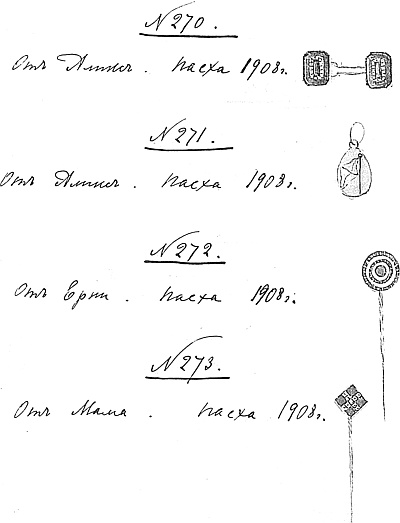 N 270.
Отъ Аликсъ. Пасха 1908г.
N 271.
Отъ Аликсъ. Пасха 1908г.
N 272.
Отъ Ерни. Пасха 1908г.
N 273.
Отъ Мама. Пасха 1908г.